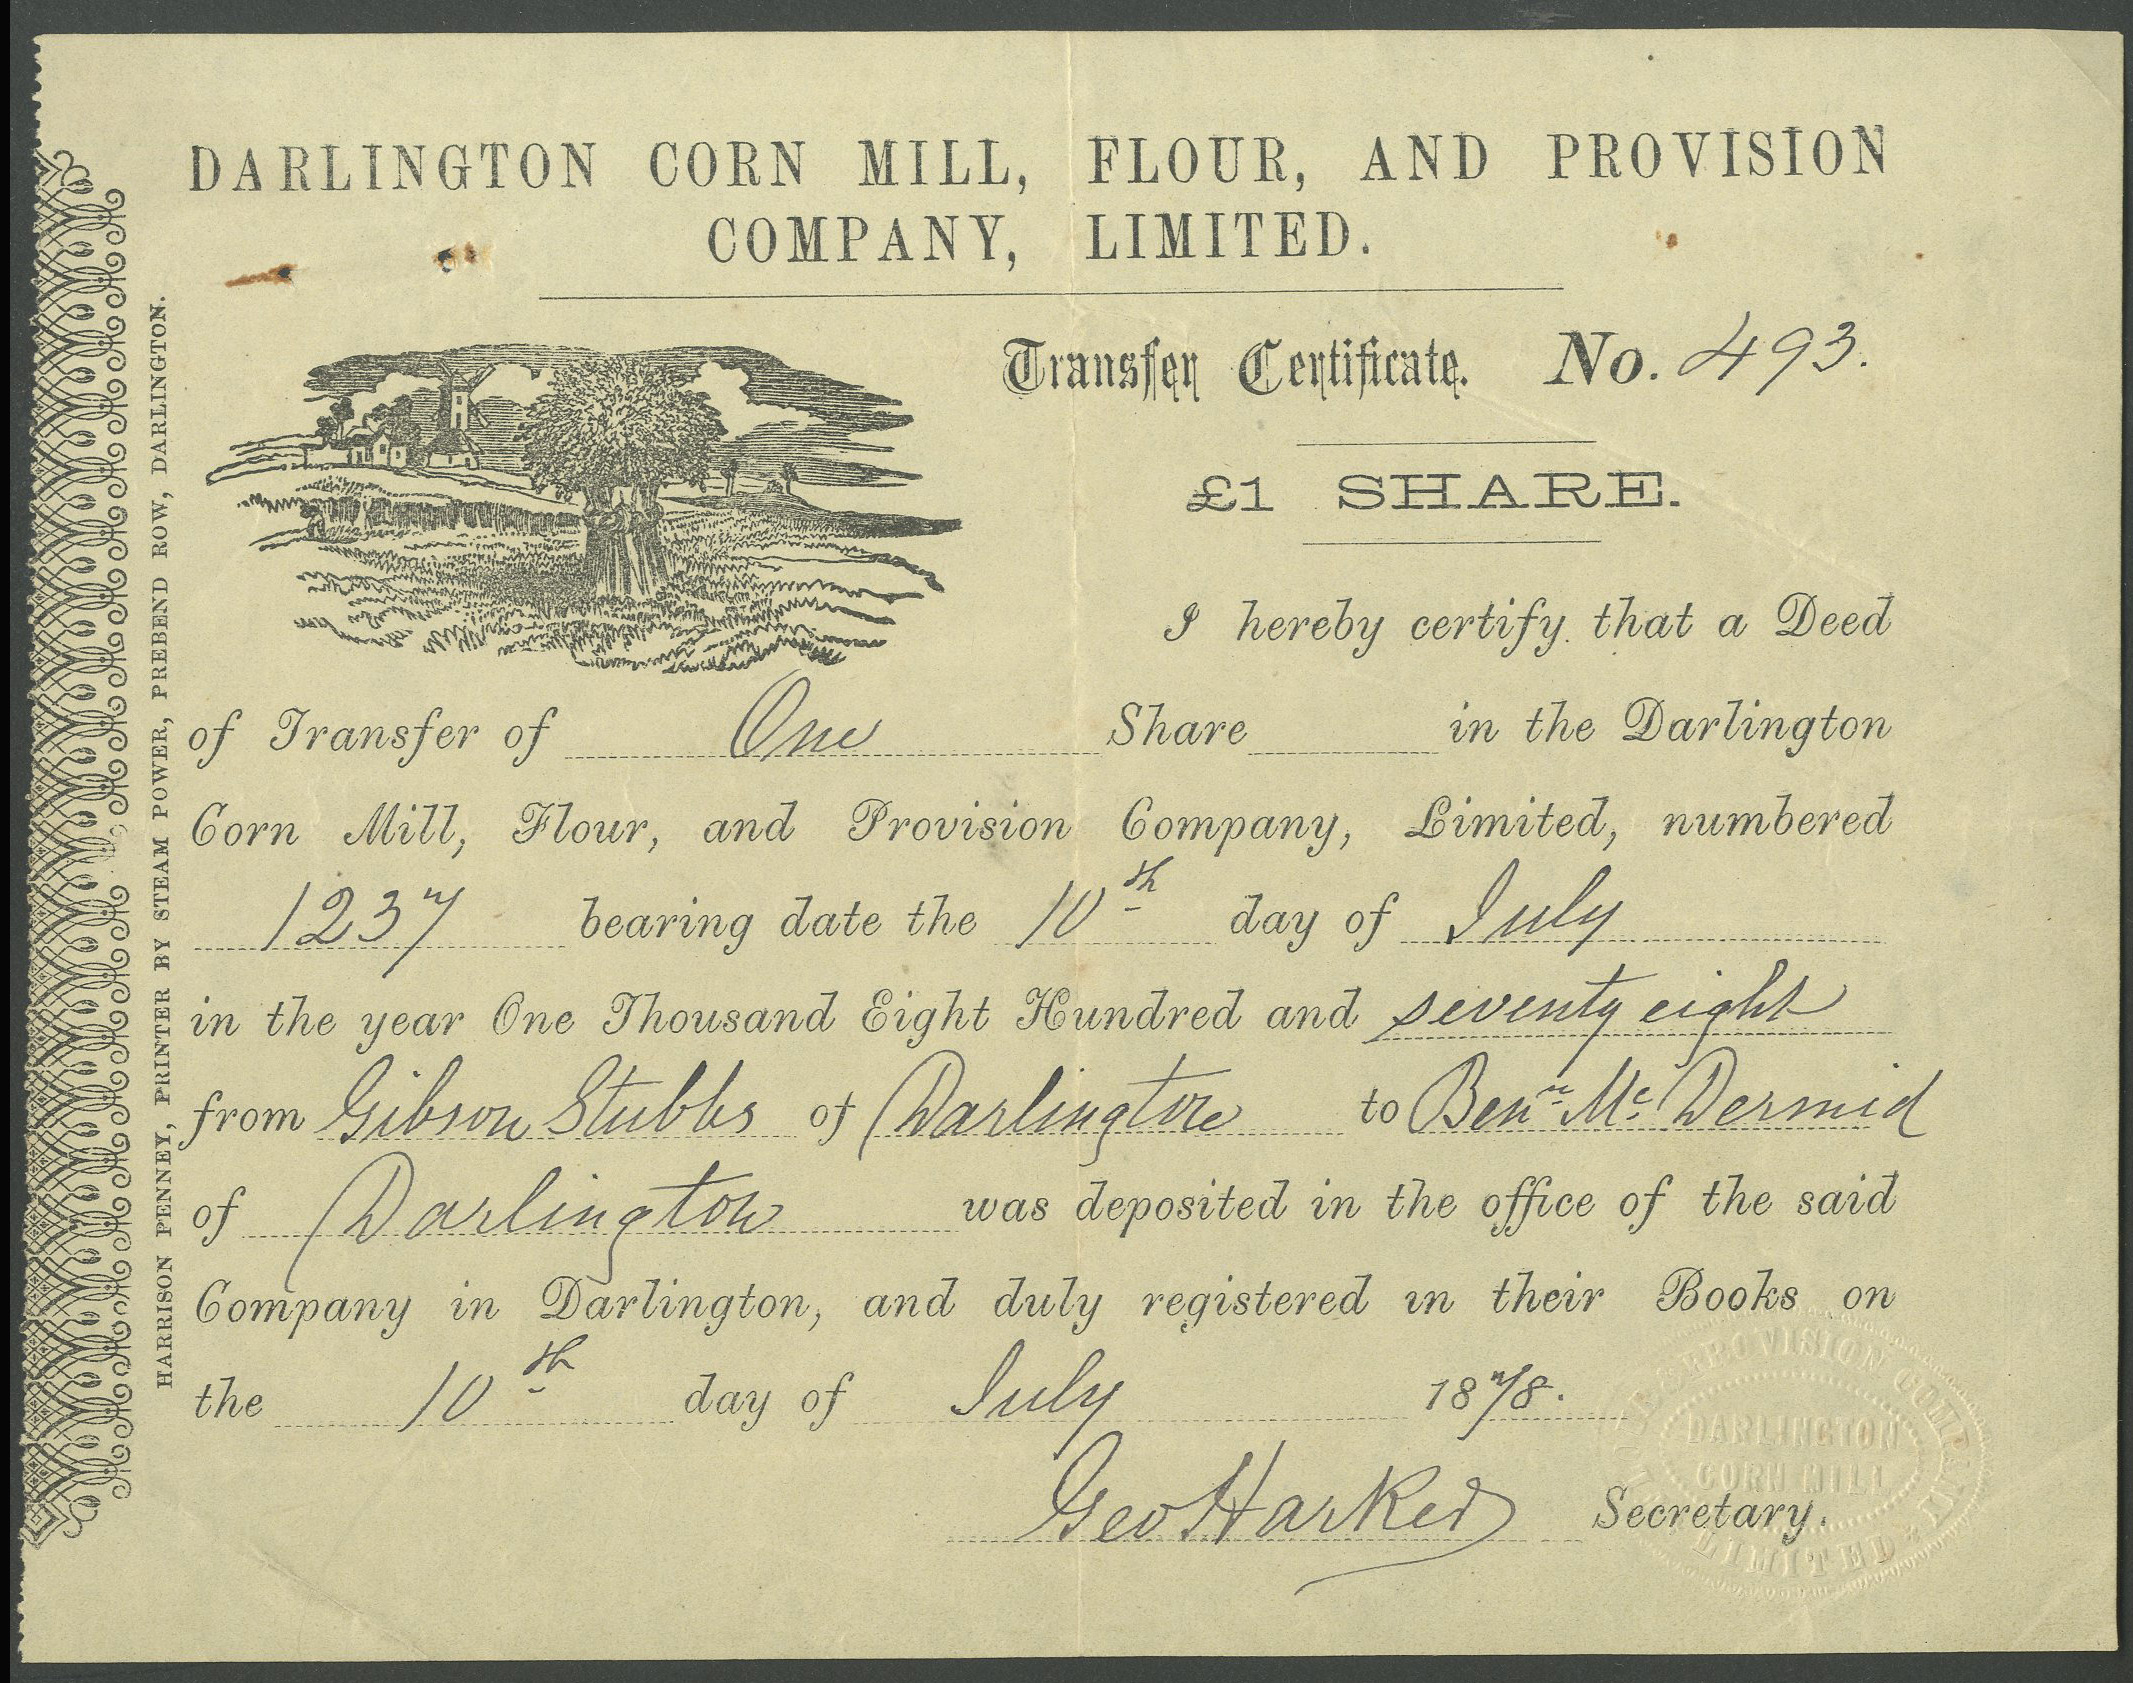 DARLINGTON CORN MILL, FLOUR, AND PROVISION
COMPANY, LIMITED.
Transfer Certificate. No. 493.
£1 SHARE.
I hereby certify that a Deed
of Transfer of One Share in the Darlington
Corn Mill, Flour, and Provision Company, Limited, numbered
1237 bearing date the 10th day of July
in the year One Thousand Eight Hundred and seventy eight
from Gibson Stubbs of Darlington to Benn Mc Dermid
of Darlington was deposited in the office of the said
Company in Darlington, and duly registered in their Books on
the 10th day of July 1878.
Geo Harker Secretary.
HARRISON PENNEY, PRINTER BY STEAM POWER, PREBEND ROW, DARLINGTON.
FLOUR & PROVISION COMPANY
DARLINGTON
CORN MILL
LIMITED